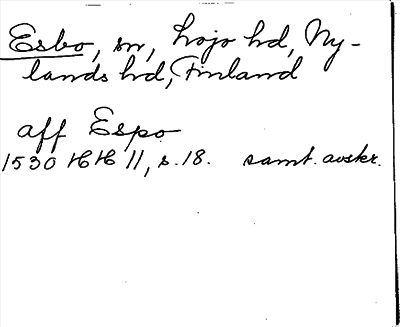 Esbo, sn, Lojo hd, Ny-
lands hd, Finland
aff Espo
1530 HH 11, s. 18. samt. avskr.